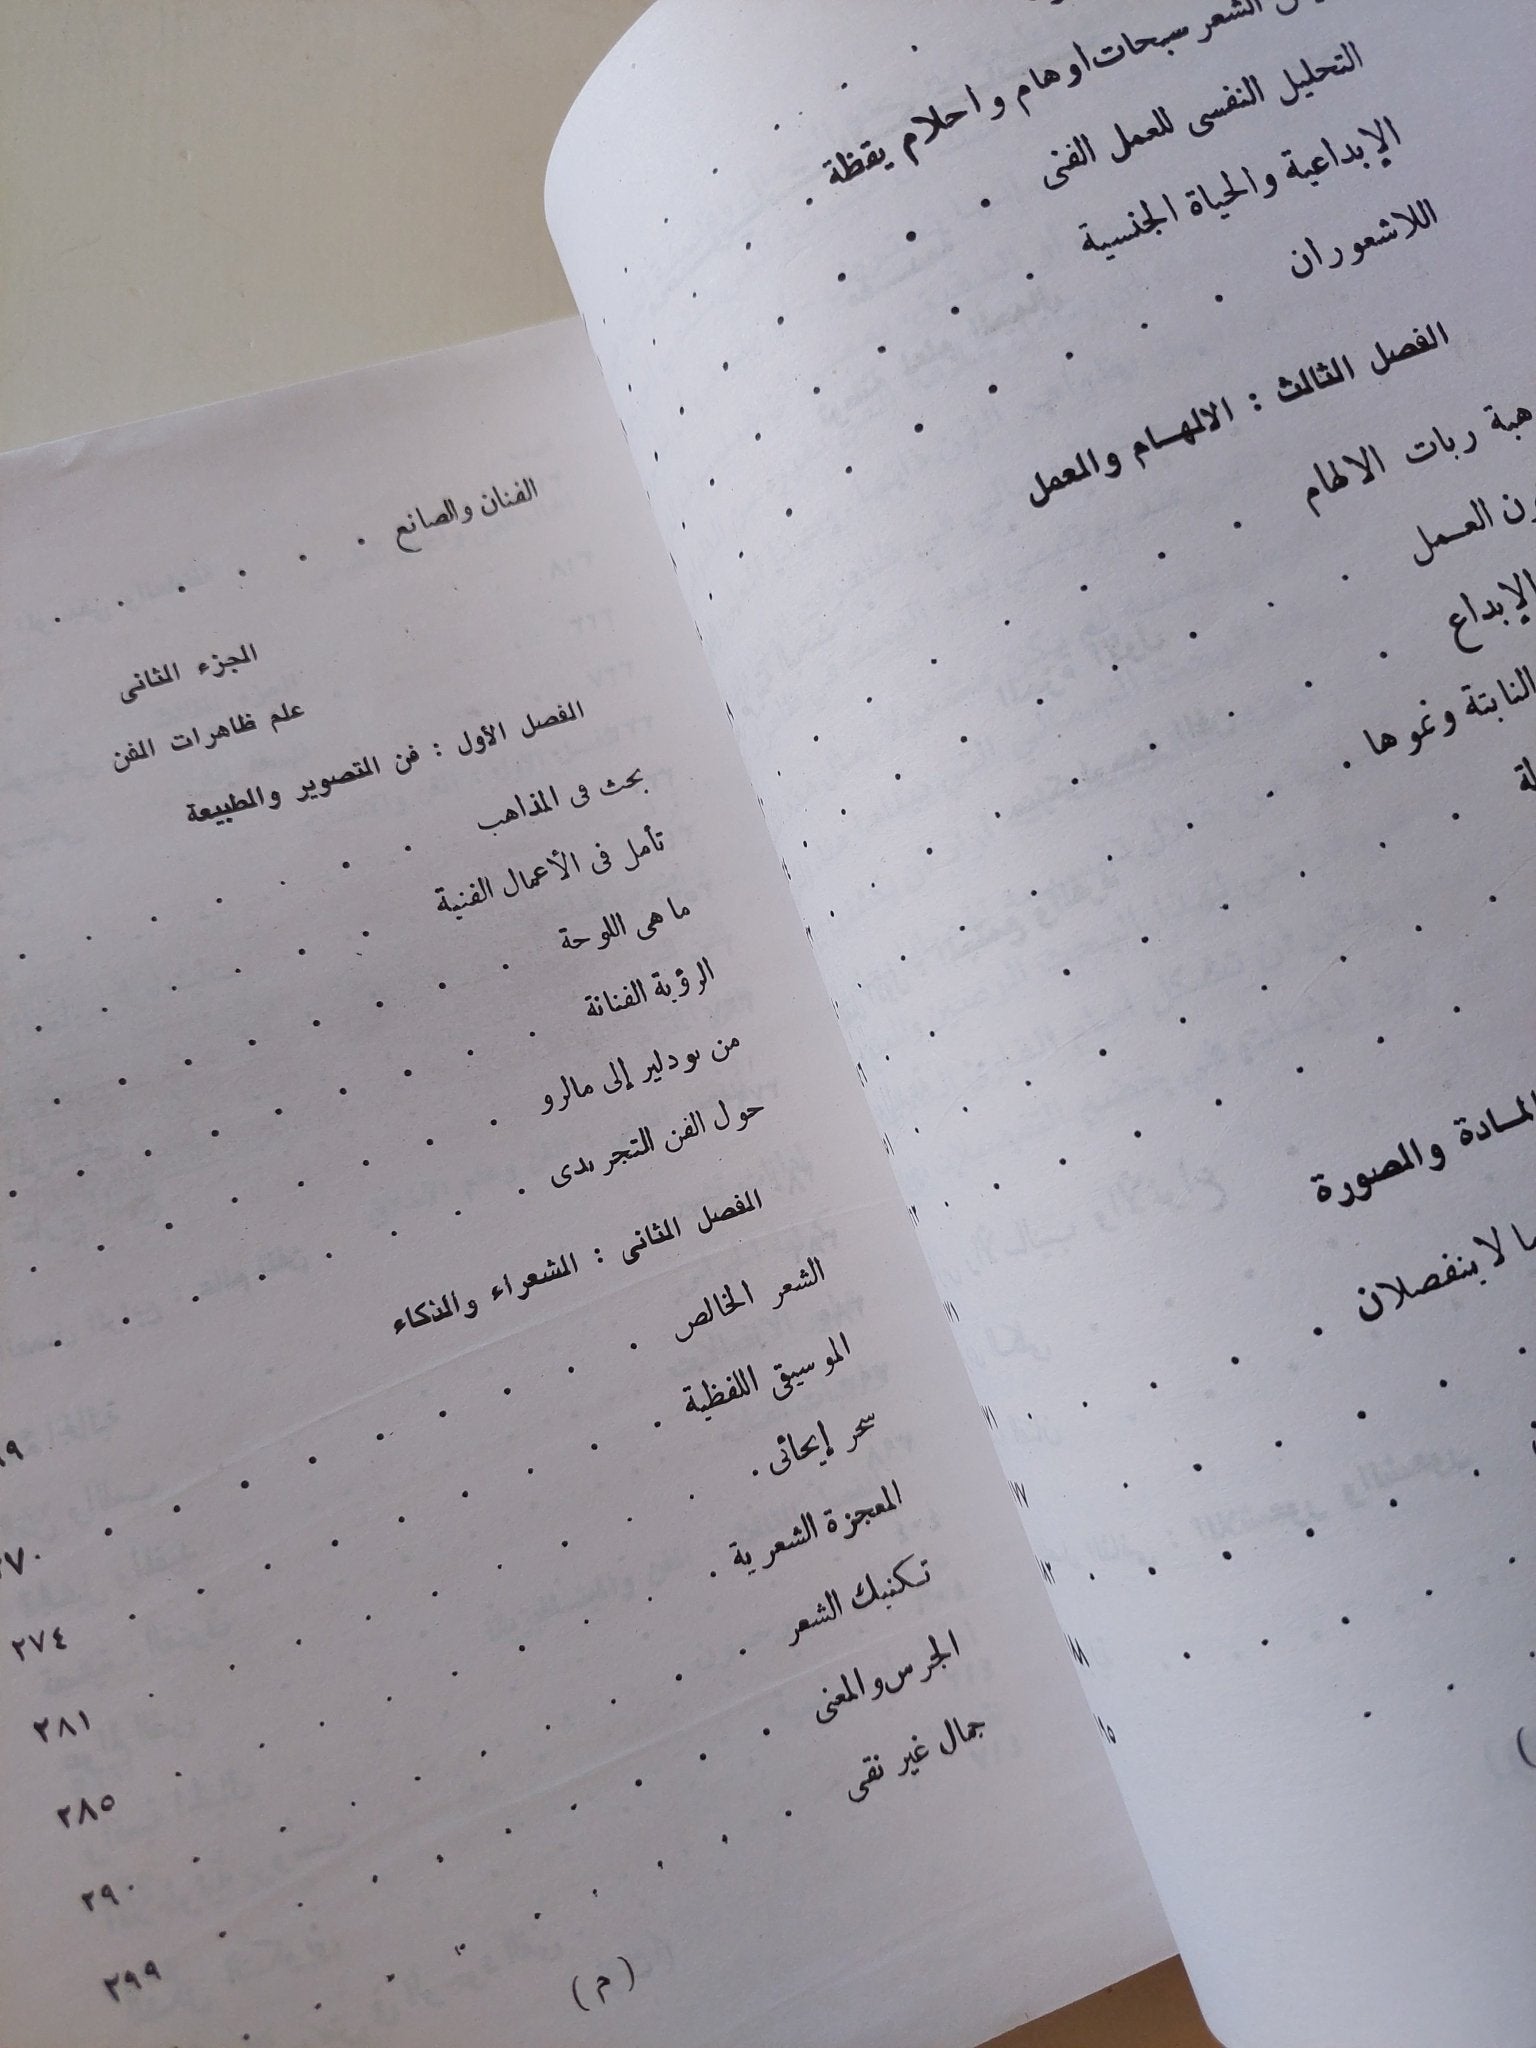 الشعر سبحات اوهام واحلام يقظة
التحليل النفسى للعمل الفنى
الإبداعية والحياة الجنسية
اللاشعوران
الفصل الثالث : الالهام والعمل
ربات الالهام
العمل
الإبداع
النابتة ونموها
المادة والصورة
لا ينفصلان
الفنان والصانع
الجزء الثانى
علم ظاهرات الفن
الفصل الأول : فن التصوير والطبيعة
بحث فى المذاهب
تأمل فى الأعمال الفنية
ما هى اللوحة
الرؤية الفنانة
من بودلير إلى مالرو
حول الفن التجريدى
الفصل الثانى : الشعراء والذكاء
الشعر الخالص
الموسيقى اللفظية
سحر إيحائى ٢٧٤
المعجزة الشعرية ٢٨١
تكنيك الشعر ٢٨٥
الجرس والمعنى ٢٩٠
جمال غير نقى ٢٩٩
( م )